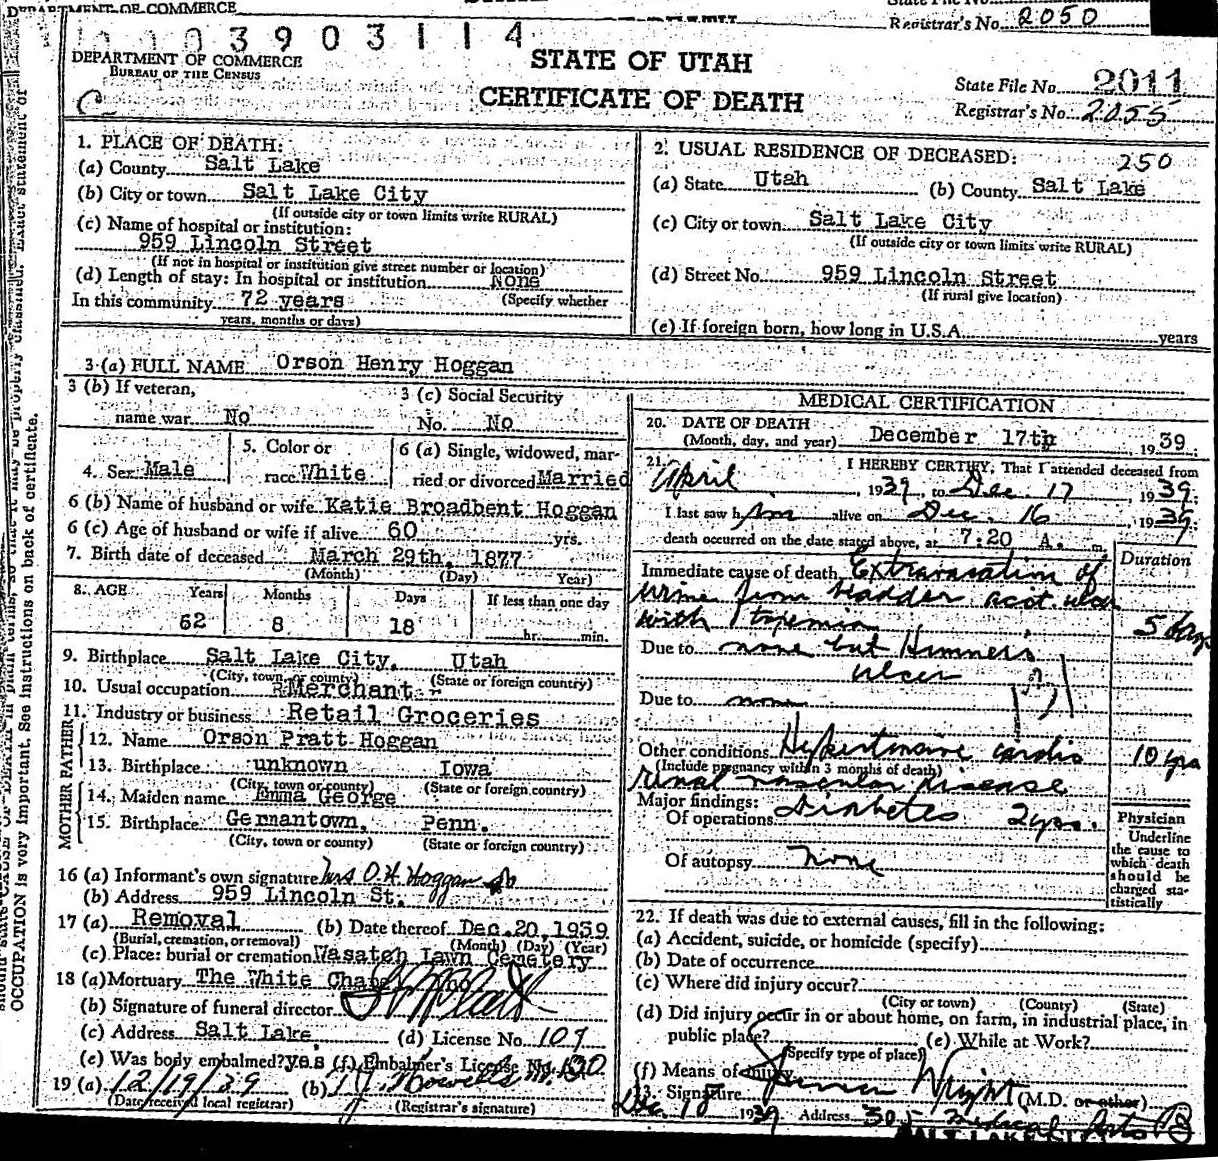 DEPARTMENT OF COMMERCE
Registrar's No. 2050
0003903114
DEPARTMENT OF COMMERCE
BUREAU OF THE CENSUS
C
STATE OF UTAH
CERTIFICATE OF DEATH
State File No. 2011
Registrar's No. 2055
1. PLACE OF DEATH:
(a) County Salt Lake
(b) City or town Salt Lake City
(If outside city or town limits write RURAL)
(c) Name of hospital or institution:
959 Lincoln Street
(If not in hospital or institution give street number or location)
(d) Length of stay: In hospital or institution None
In this community 72 years (Specify whether
years, months or days)
2. USUAL RESIDENCE OF DECEASED: 250
(a) State Utah (b) County Salt Lake
(c) City or town Salt Lake City
(If outside city or town limits write RURAL)
(d) Street No. 959 Lincoln Street
(If rural give location)
(e) If foreign born, how long in U.S.A. years
3 (a) FULL NAME Orson Henry Hoggan
3 (b) If veteran,
name war No
3 (c) Social Security
No. No
4. Sex Male
5. Color or
race White
6 (a) Single, widowed, mar-
ried or divorced Married
6 (b) Name of husband or wife Katie Broadbent Hoggan
6 (c) Age of husband or wife if alive 60 yrs.
7. Birth date of deceased March 29th, 1877
(Month) (Day) Year)
8. AGE Years Months Days If less than one day
62 8 18 hr. min.
9. Birthplace Salt Lake City, Utah
(City, town, or county) (State or foreign country)
10. Usual occupation Merchant
11. Industry or business Retail Groceries
FATHER
12. Name Orson Pratt Hoggan
13. Birthplace unknown Iowa
(City, town or county) (State or foreign country)
MOTHER
14. Maiden name Emma George
15. Birthplace Germantown, Penn.
(City, town or county) (State or foreign country)
16 (a) Informant's own signature Mrs O.H. Hoggan
(b) Address 959 Lincoln St.
17 (a) Removal (b) Date thereof Dec. 20, 1939
(Burial, cremation, or removal) (Month) (Day) (Year)
(c) Place: burial or cremation Wasatch Lawn Cemetery
18 (a) Mortuary The White Chapel
(b) Signature of funeral director
(c) Address Salt Lake (d) License No. 107
(e) Was body embalmed? yes (f) Embalmer's License No. 130
19 (a) 12/19/39 (b)
(Date received local registrar) (Registrar's signature)
MEDICAL CERTIFICATION
20. DATE OF DEATH
(Month, day, and year) December 17th 1939.
21. I HEREBY CERTIFY, That I attended deceased from
April, 1939, to Dec. 17, 1939;
I last saw him alive on Dec. 16, 1939;
death occurred on the date stated above, at 7:20 A. m.
Duration
Immediate cause of death Extravasation of
urine from bladder acct. ulcer
with toxemia 5 days
Due to none but Hunner's
ulcer
Due to none
Other conditions Hypertensive cardio 10 yrs
(Include pregnancy within 3 months of death)
renal vascular disease
Major findings: Diabetes 2 yrs.
Of operations
Of autopsy none
Physician
Underline
the cause to
which death
should be
charged sta-
tistically
22. If death was due to external causes, fill in the following:
(a) Accident, suicide, or homicide (specify)
(b) Date of occurrence
(c) Where did injury occur?
(City or town) (County) (State)
(d) Did injury occur in or about home, on farm, in industrial place, in
public place? (e) While at Work?
(Specify type of place)
(f) Means of injury
23. Signature Wright (M.D. or other)
Dec. 18 1939 Address 305 Medical Arts B
SALT LAKE CITY
OCCUPATION is very important. See instructions on back of certificate.